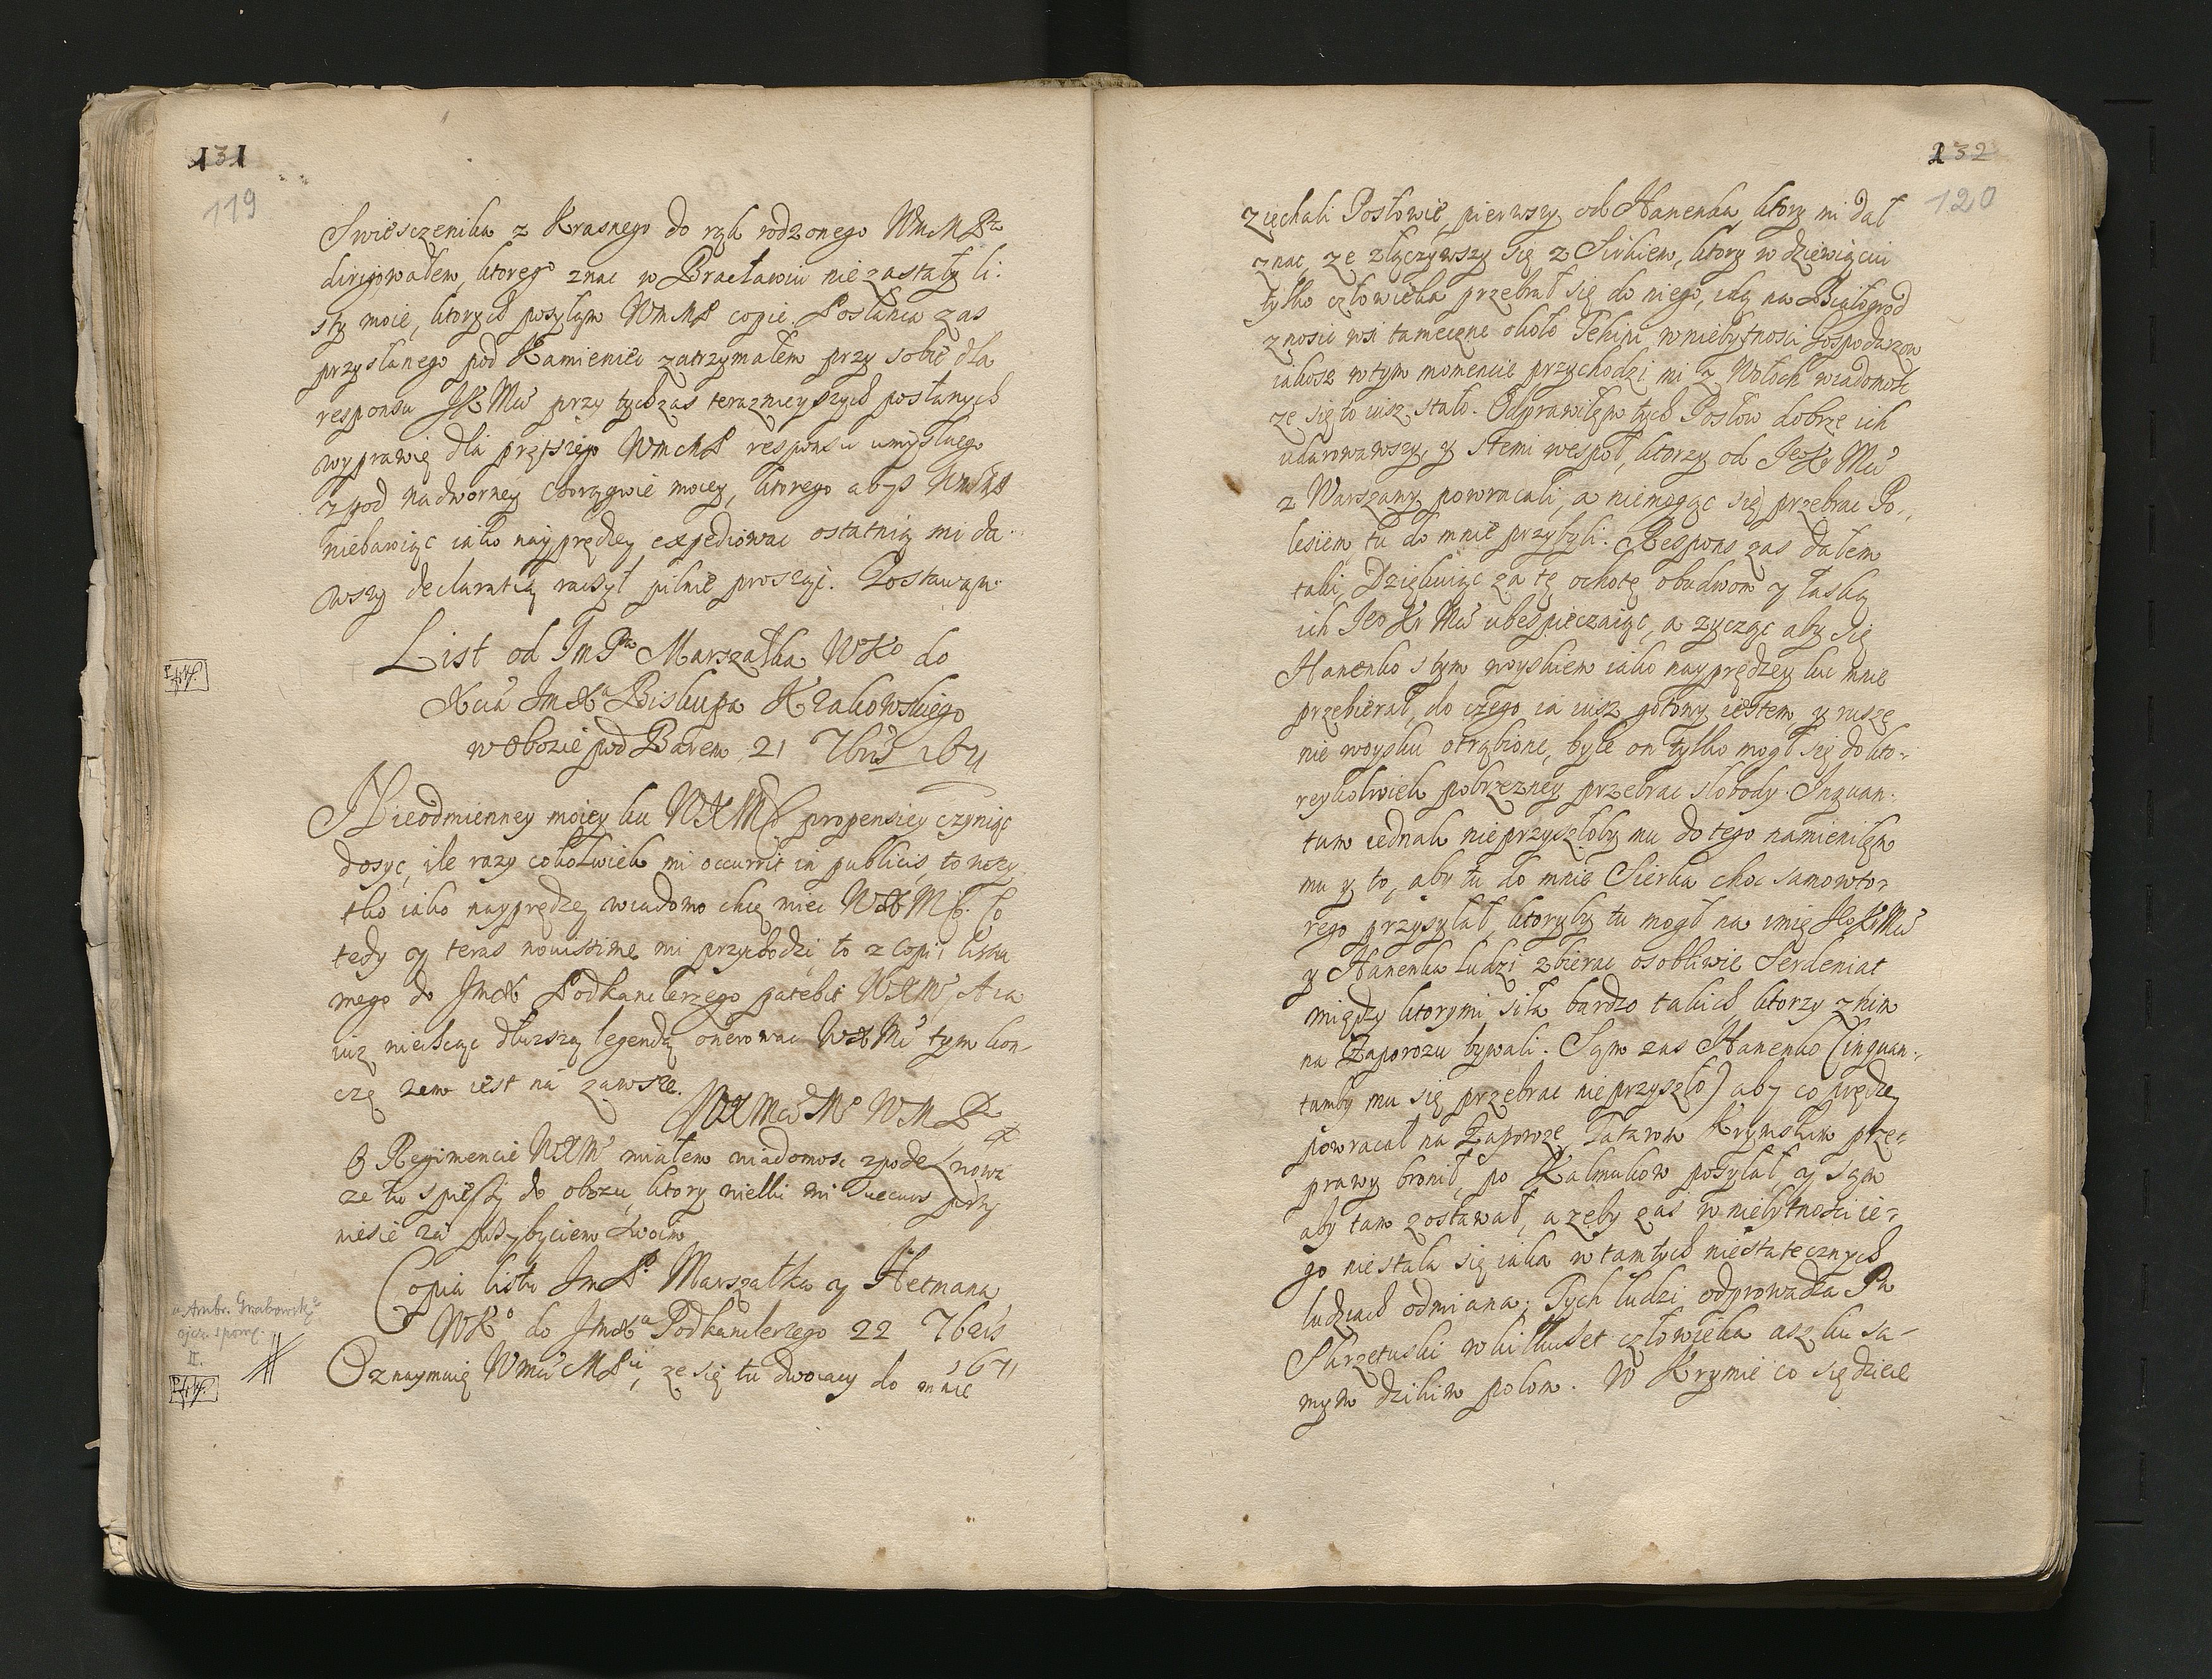 131
119
Swiesczenika z Krasnego do rąk rodzonego WmMPa
dirigowałem, ktorego znac w Bracławiu nie zastały li-
sty moie, ktorych posyłąm WmMP copie. Posłańca zas
przysłanego pod Kamieniec zatrzymałem przy sobie dla
responsu JKMci przy tych zas teraznieyszych posłanych
wyprawię dla prętszego WmMP responsu umyslnego
z pod nadworney Chorągwie moiey, ktorego abys WmMP
niebawiąc iako nayprędzey expediowac ostatnią mi da-
wszy declaratią raczył pilnie proszę. Zostawąm.
List od JmPa Marszałka WKo do
Xcia JmXa Biskupa Krakowskiego
w obozie pod Barem 21 7bris 1671
Nieodmienney moiey ku WXM propensiey czyniąc
dosyc, ile razy cokolwiek mi occurrit in publicis, to wszy-
tko iako nayprędzey wiadomo chcę miec WXM. Co
tedy y teras nouissime mi przychodzi to z Copii listu
mego do JmX Podkanclerzego patebit WXM, A ia
iuz niechcąc dłuzszą legendą onerowac WXM tym kon-
czę zem iest na zawsze.
WXMci M WMP
O Regimencie WXM miałem wiadomosc zpode Lwowa
ze tu spieszy do obozu, ktory wielki mi succurs przy
niesie za przybyciem swoim
Copia listu JmP Marszałka y Hetmana
WKo do JmXa Podkanclerzego 22 7bris
1671
Oznaymuię WmMP, ze się tu dwoiacy do mnie
Ambr. Grabowski
ojcz. spom.
II.
132
120
ziechali Posłowie, pierwszy od Hanenka, ktory mi dał
znac, ze złączywszy się z Sirkiem, ktory w dziewiąciu
tylko człowieka przebrał się do niego, idą na Białogrod
znosic wsi tameczne około Tehini w niebytnosci Gospodarzow
iakosz w tym momencie przychodzi mi z Wołoch wiadomosc
ze się to iusz stało. Odprawiłem tych Posłow dobrze ich
udarowawszy, y z temi wespoł, ktorzy od JeoKr Mci
z Warszawy powracali, a niemogąc się przebrac Po-
lesiem tu do mnie przybyli. Respons zas dałem
taki, Dziękuiąc za tę ochotę obudwom y łaską
ich Jeo Kr Mci ubespieczaiąc, a zycząc aby się
Hanenko z tym woyskiem iako nayprędzey ku mnie
przebierał, do czego ia iusz gotowy iestem, y rusze-
nie woysku otrąbione, byle on tylko mogł się do kto-
reykolwiek pobrzezney przebrac słobody. Inquan-
tum iednak nieprzyszłoby mu do tego namieniłem
mu y to, aby tu do mnie Sierka choc samowto-
rego przysyłał, ktoryby tu mogł na imię JeoKrMci
y Hanenka ludzi zbierac osobliwie Serdeniat
między ktorymi siła bardzo takich ktorzy z nim
na Zaporozu bywali. Sąm zas Hanenko (inquan-
tumby mu się przebrac nieprzyszło) aby co prędzey
powracał na Zaporoze, Tatarom Krymskim prze-
prawy bronił, po Kałmukow posyłał y sąm
aby tam zostawał, azeby zas w niebytnosci ie-
go niestała się iaka w tamtych niestatecznych
ludziach odmiana; Tych ludzi odprowadza Pa
Skrzetuski w kilkuset człowieka asz ku sa-
mym dzikim polom. W Krymie co się dzieie